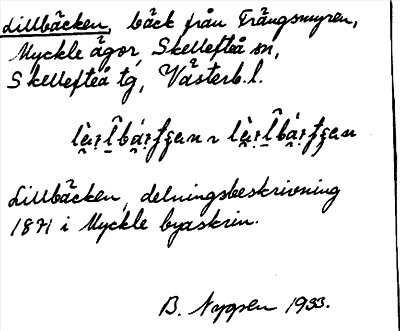 Lillbäcken, bäck från Trångsmyren,
Myckle ägor, Skellefteå sn,
Skellefteå tg, Västerb. l.
Lillbäcken, delningsbeskrivning
1871 i Myckle byaskrin.
B. 1933.